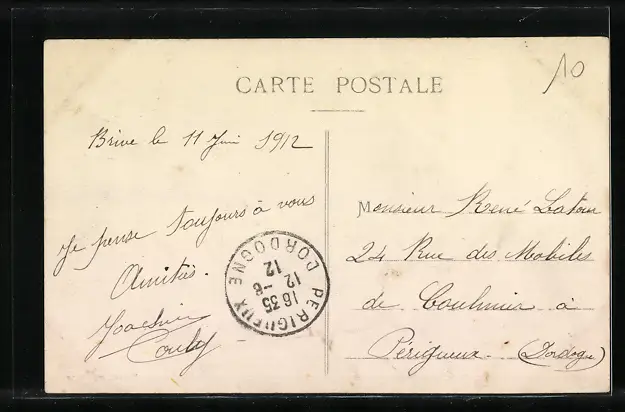 CARTE POSTALE
10
Brive le 11 Juin 1912
Je pense toujours à vous
Amitiés.
Joachim
Monsieur René Latour
24 Rue des Mobiles
de Coulmier à
Périgueux. (Dordogne)
PERIGUEUX DORDOGNE
16 35
12 -6
12